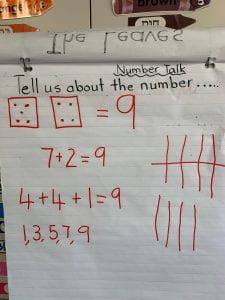 The Leaves
Number Talk
Tell us about the number.....
= 9
7+2=9
4+4+1=9
1,3,5,7,9